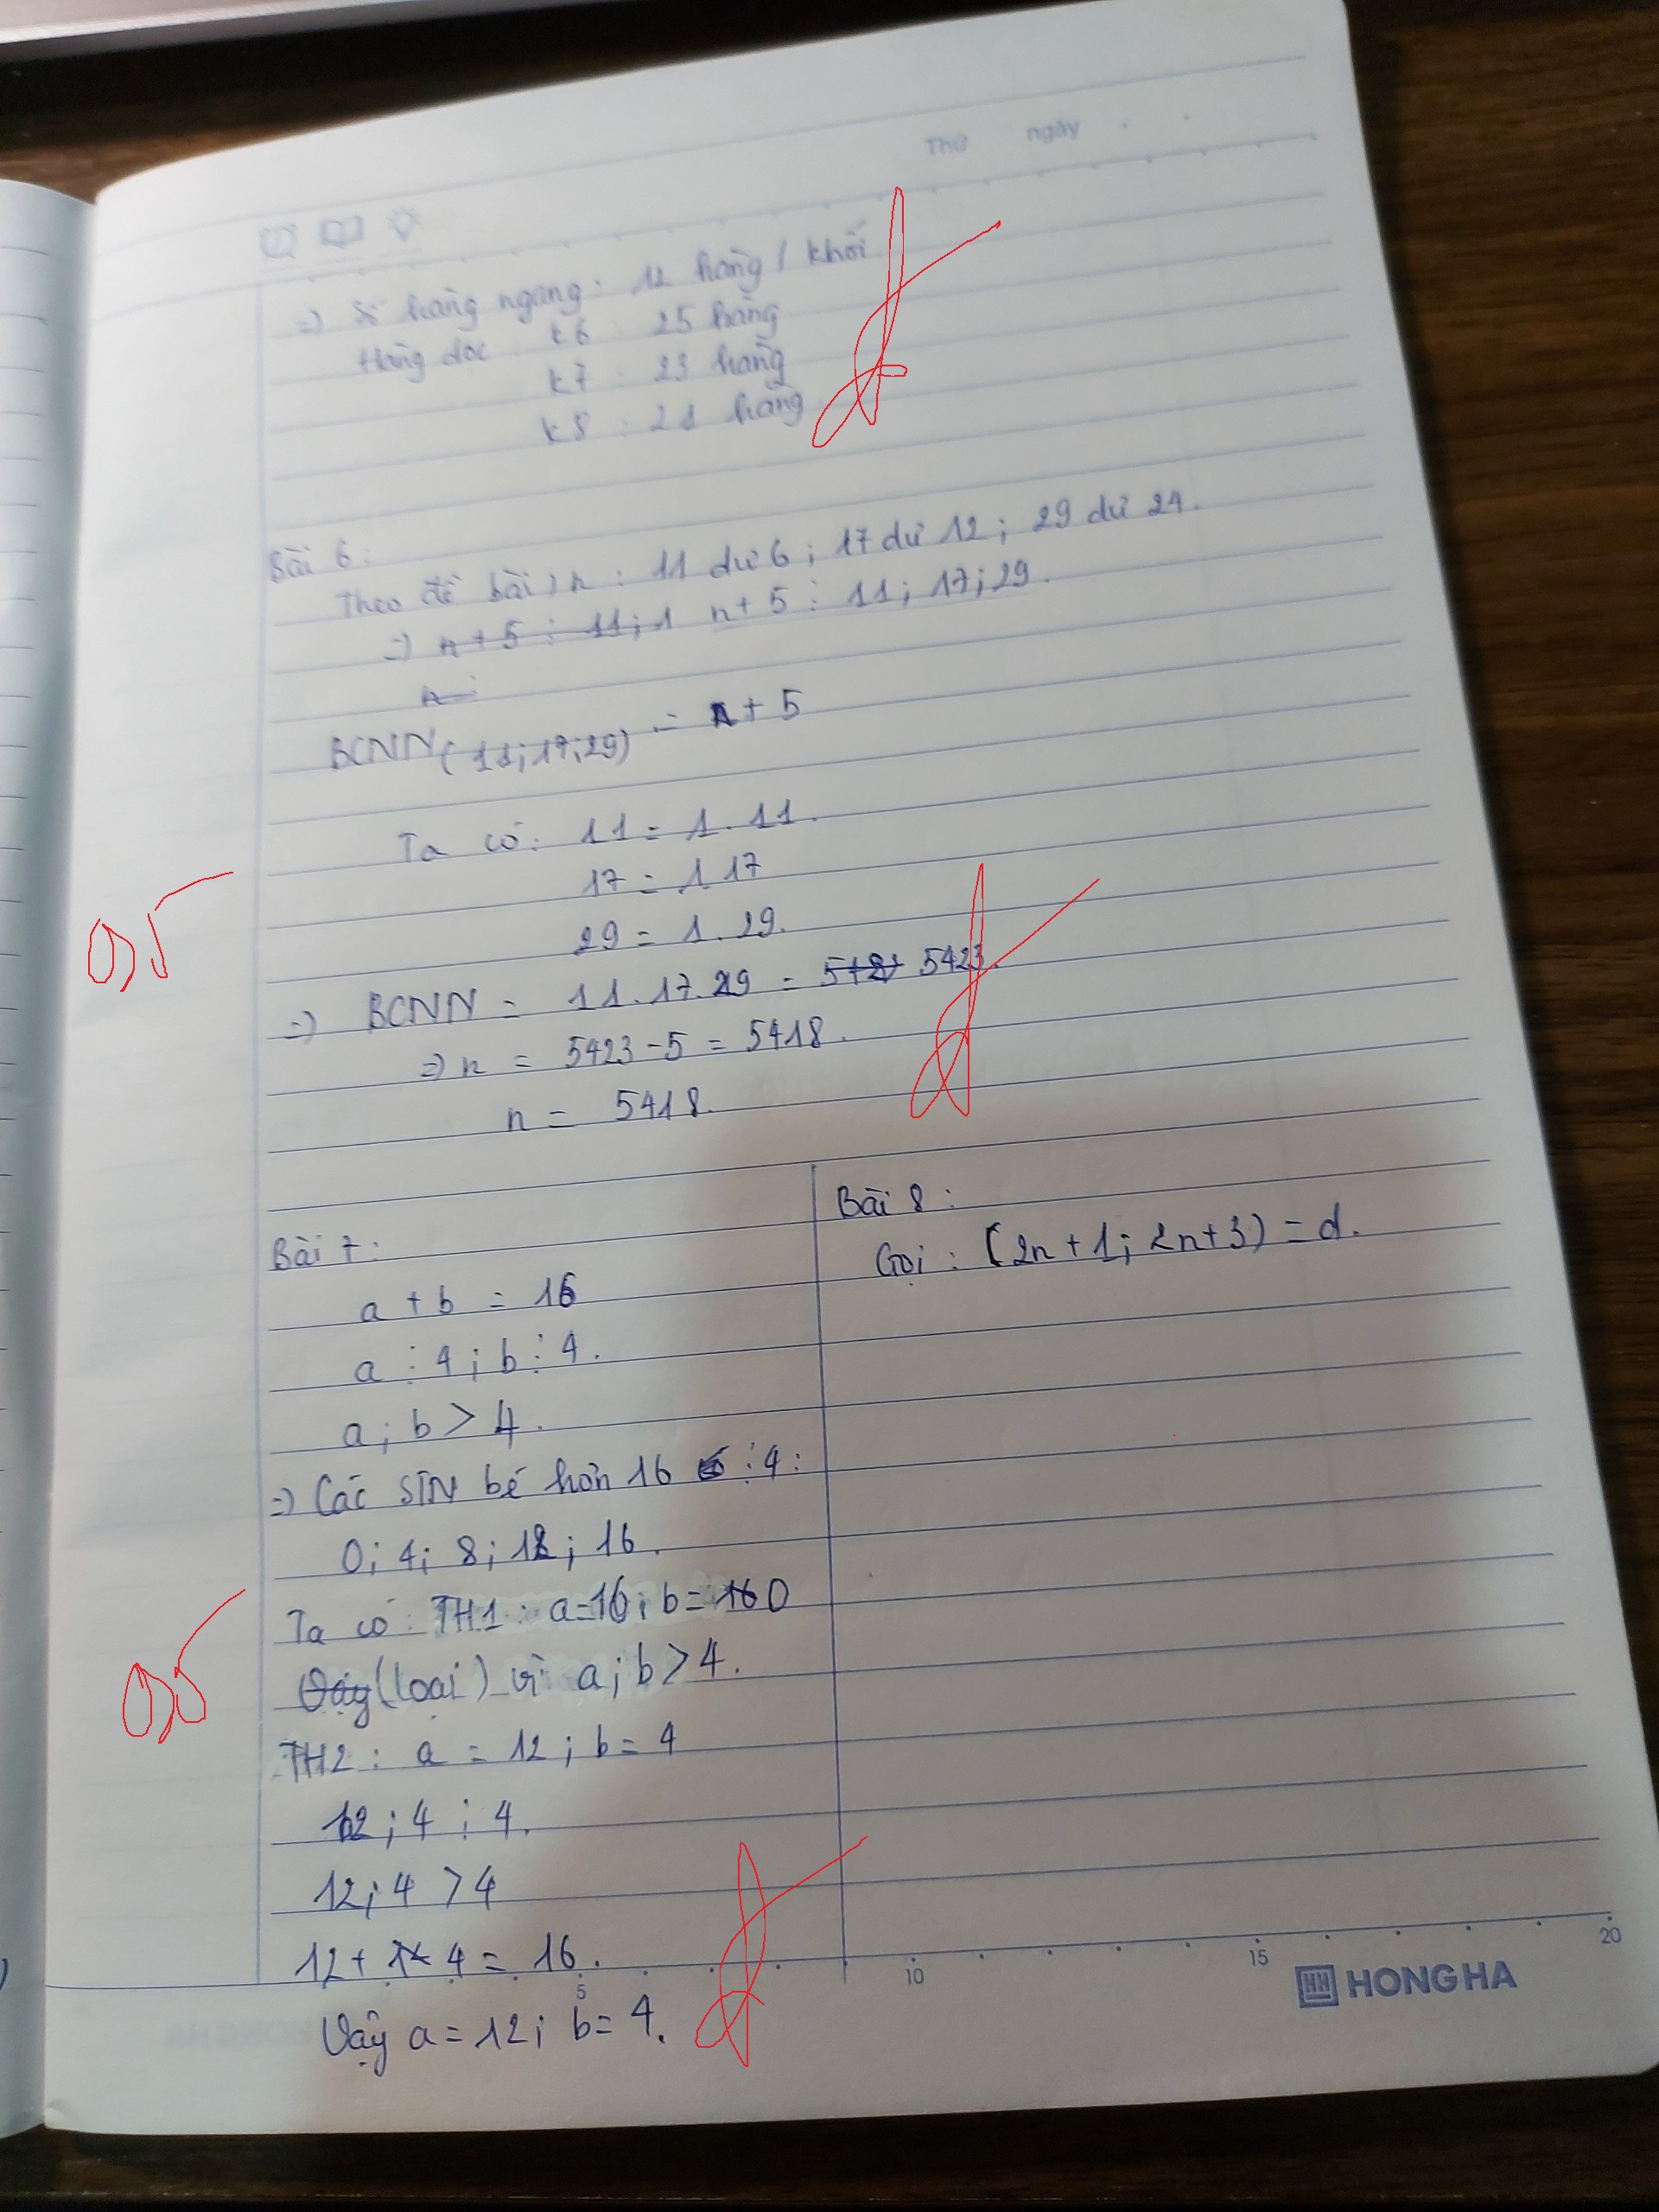 Thứ ngày
=) Số hàng ngang : 12 hàng / khối
Hàng dọc : k6 : 25 hàng
k7 : 23 hàng
k8 : 21 hàng
Bài 6 :
Theo đề bài, n : 11 dư 6 ; 17 dư 12 ; 29 dư 24.
=) n + 5 ⋮ 11; 1 n + 5 ⋮ 11 ; 17 ; 29.
n
BCNN(11;17;29) = n + 5
Ta có : 11 = 1 . 11.
17 = 1 17
29 = 1 . 29.
0,5
=) BCNN = 11 . 17 . 29 = 5423.
=) n = 5423 - 5 = 5418.
n = 5418.
Bài 7 :
a + b = 16
a ⋮ 4 ; b ⋮ 4.
a ; b > 4.
=) Các STN bé hơn 16 ⋮ 4 :
0 ; 4 ; 8 ; 12 ; 16.
Ta có : TH1 : a = 16 ; b = 16 0
Vậy (loại) vì a ; b > 4.
0,5
TH2 : a = 12 ; b = 4
12 ; 4 ⋮ 4.
12 ; 4 > 4
12 + 4 = 16.
Vậy a = 12 ; b = 4.
Bài 8 :
Gọi : (2n + 1 ; 2n + 3) = d.
5 10 15 20
HONG HA